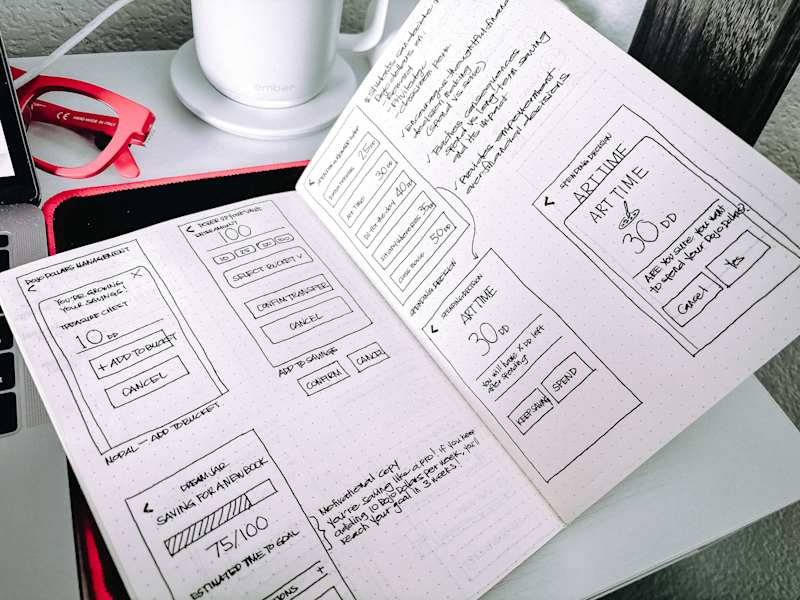 ember
CE HAND MADE IN ITALY
DOJO DOLLARS MANAGEMENT
<
X
YOU'RE GROWING
YOUR SAVINGS!
TREASURE CHEST
10 DD
+ ADD TO BUCKET
CANCEL
MODAL — ADD TO BUCKET
<
POWER UP YOUR SAVE
100
10 25 50 100
SELECT BUCKET V
CONFIRM TRANSFER
CANCEL
ADD TO SAVINGS
CONFIRM
CANCEL
<
DREAM JAR
SAVING FOR A NEW BOOK
75/100
ESTIMATED TIME TO GOAL
+
Motivational copy
You're saving like a Pro! if you keep
adding 10 Dojo Dollars per week, you'll
reach your goal in 3 weeks!
✓ Encourages thoughtful financial
decision making
(spend vs save)
✓ Teaches consequences
spend vs long term saving
and its impact
✓ Provides empowerment
over financial decisions
<
25
ART TIME
30
40
35
50 DD
SPENDING DECISION
<
SPENDING DECISION
ART TIME
30 DD
You will have X DD left
after spending
KEEP SAVING
SPEND
<
SPENDING DECISION
ART TIME
ART TIME
30 DD
ARE YOU SURE YOU WANT
to spend your Dojo Dollars?
Cancel
Yes